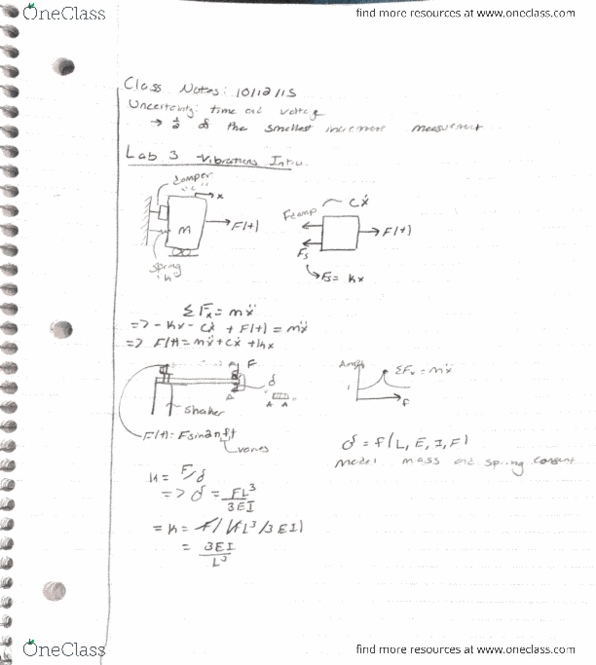 OneClass
find more resources at www.oneclass.com
Class Notes: 10/12/15
Uncertainty: time and voltage
→ 1/2 of the smallest increment measurement
Lab 3 Vibrations Intro.
Damper
"c"
x
M
F(t)
spring
k
Fdamp
Cẋ
F(t)
Fs
Fs = kx
ΣFx = mẍ
=> -kx - cẋ + F(t) = mẍ
=> F(t) = mẍ + cẋ + kx
A F
δ
A
A A
shaker
F(t) = F sin2πft
varies
ΣFx = mẍ
1
f
δ = f(L, E, I, F)
model mass and spring constant
k = F/δ
=> δ = FL³/3EI
= k = F/(FL³/3EI)
= 3EI/L³
OneClass
find more resources at www.oneclass.com